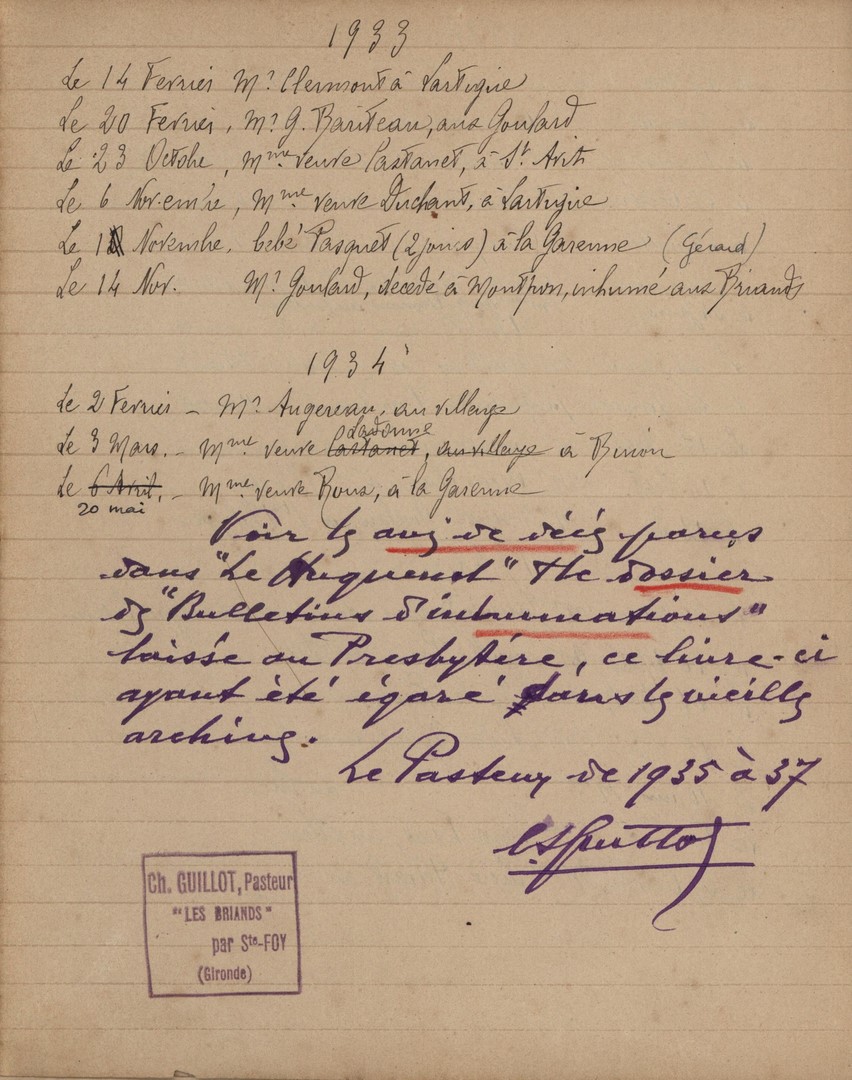 1933
Le 14 Fevrier Mr Clermont à Lartigue
Le 20 Fevrier, Mr G. Bariteau, aux Goulard
Le 23 Octobre, Mme veuve Castanet, à St Avit
Le 6 Novembre, Mme veuve Duchant, à Lartigue
Le Novembre, bébé Pasquet (2 jours) à la Garenne (Gérard)
Le 14 Nov. Mr Goulard, décedé à Montpon, inhumé aux Briands
1934
Le 2 Fevrier - Mr Augereau, au village
Ladonne
Le 3 Mars. - Mme veuve Castanet, au village à
Le 6 Avril, - Mme veuve Roux, à la Garenne
20 mai
Voir les avis de décès parus
dans "Le Huguenot" & le dossier
des "Bulletins d'inhumations"
laissée au Presbytère, ce livre-ci
ayant été égaré dans les vieilles
archives.
Le Pasteur de 1935 à 37
Ch. GUILLOT, Pasteur
"LES BRIANDS"
par Ste-FOY
(Gironde)